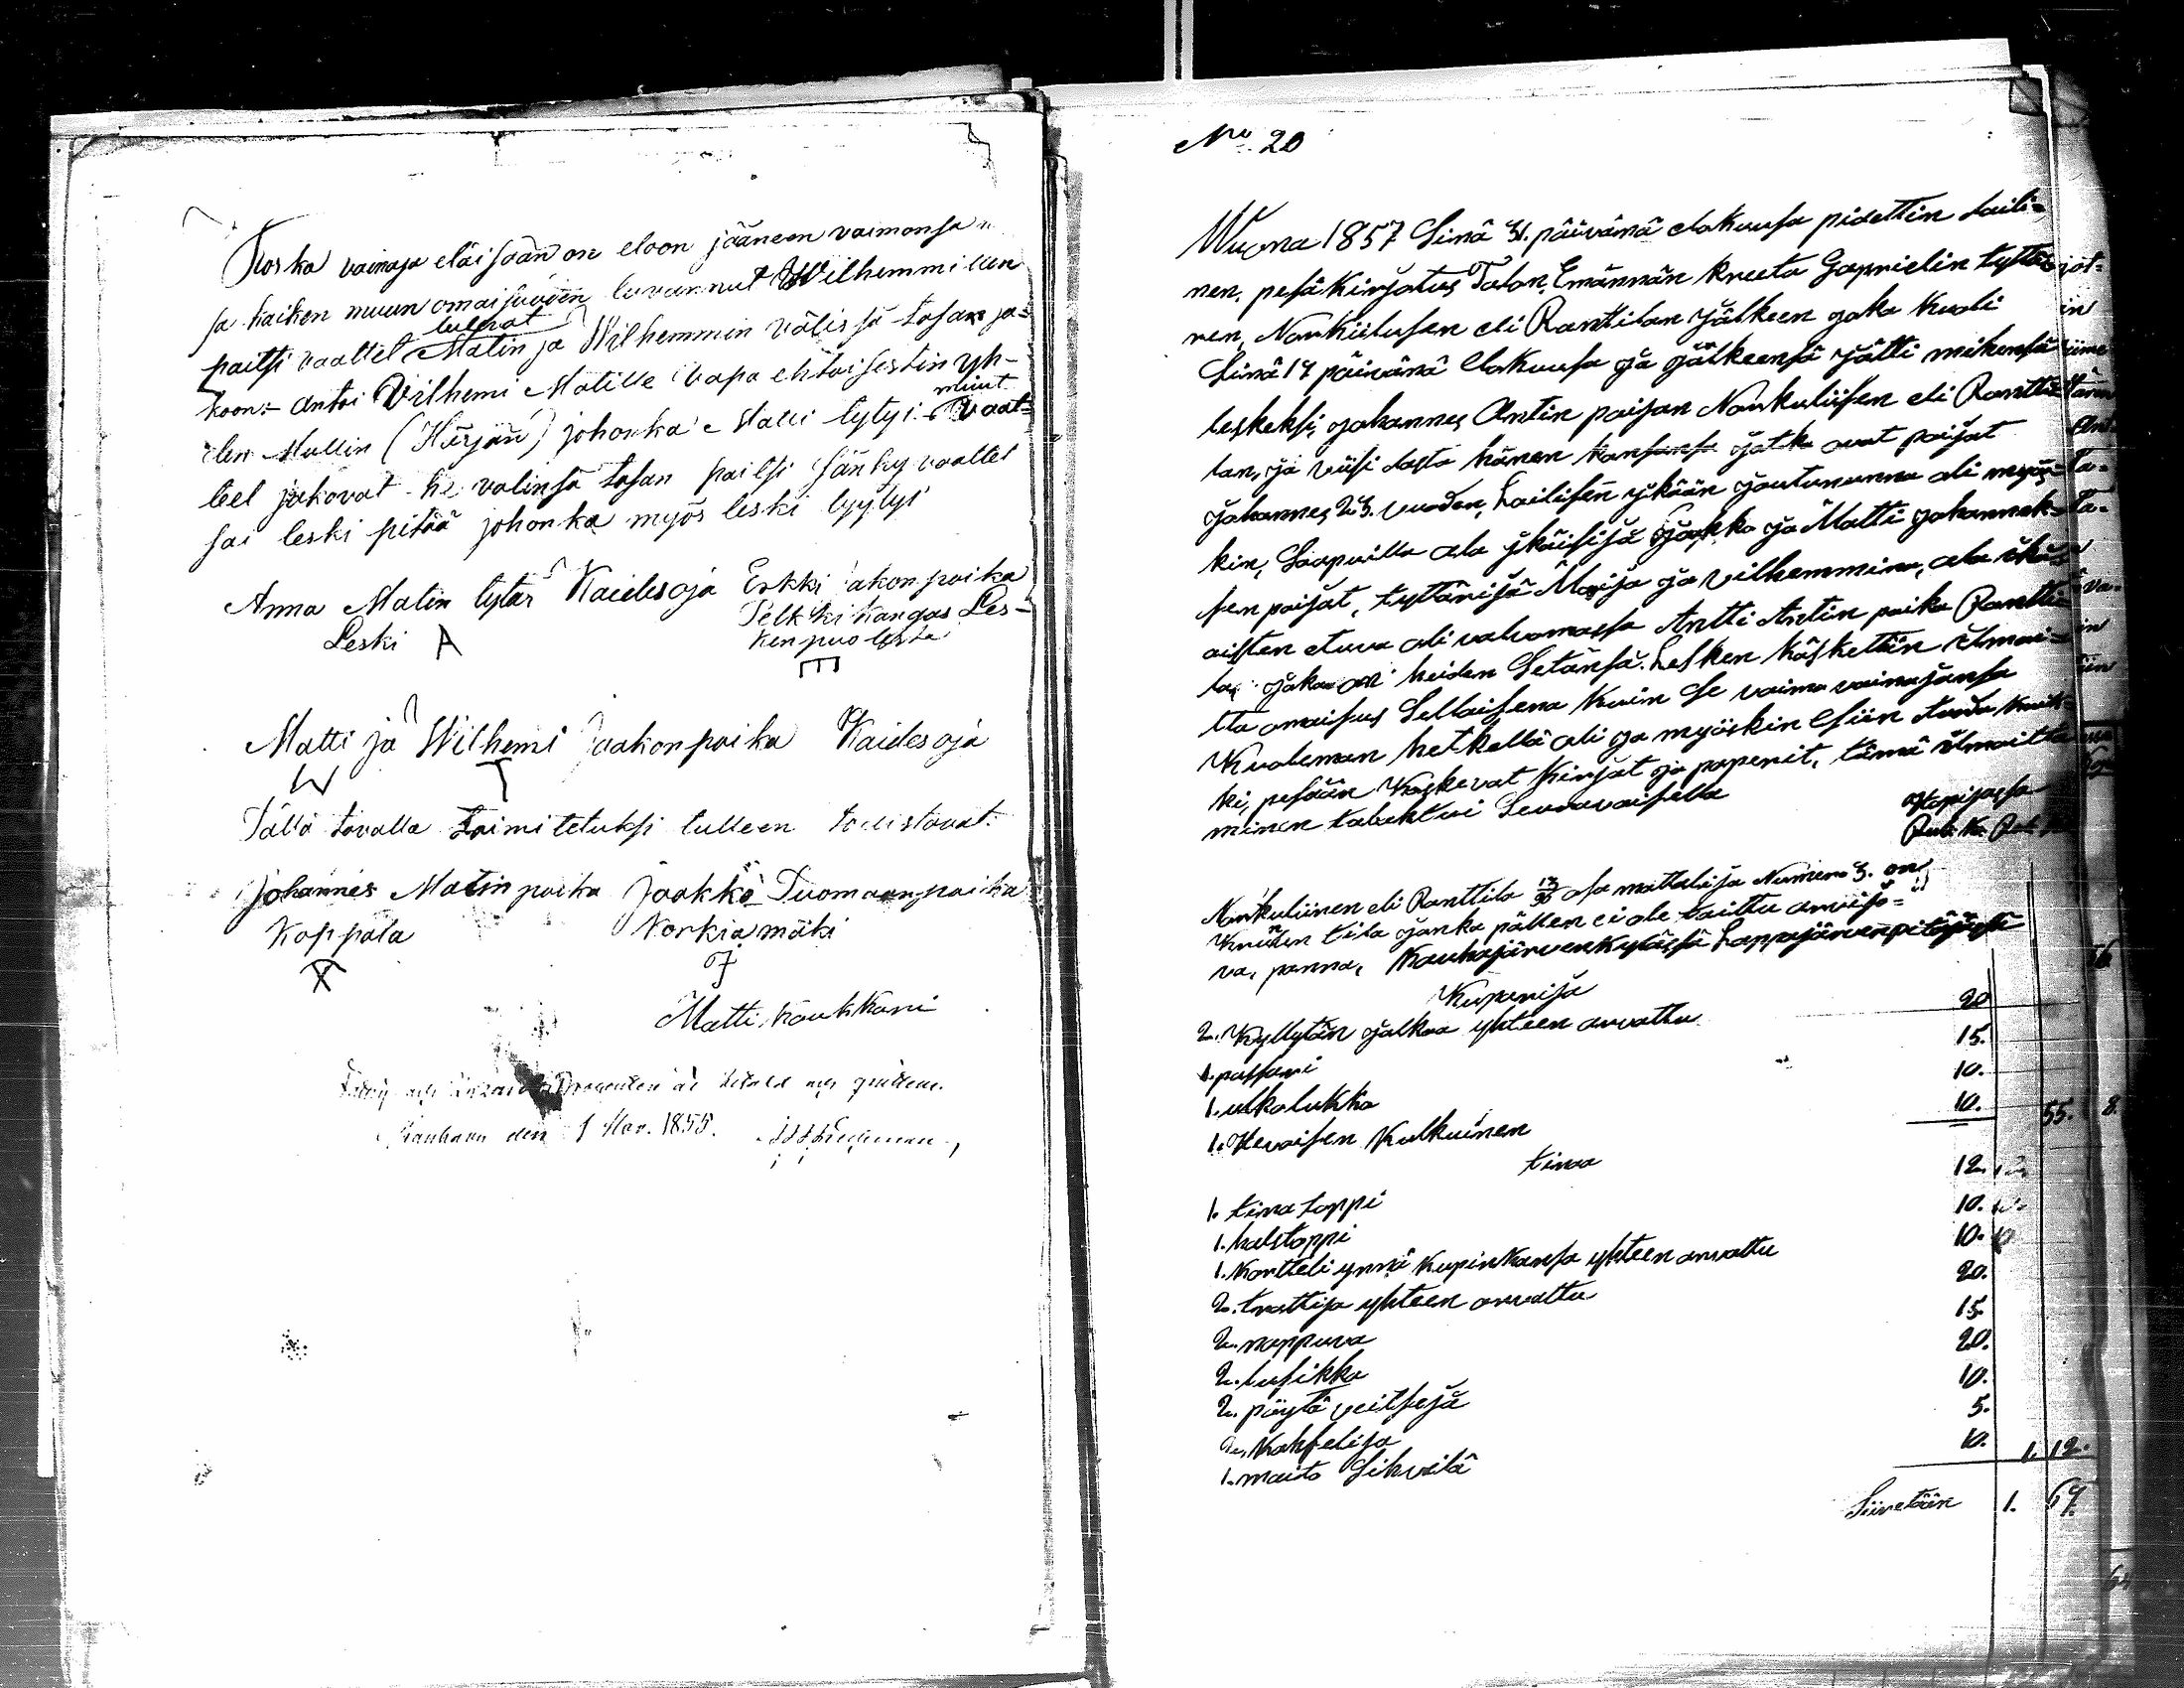 Koska vainaja eläisään on eloon jääneen vaimonsa
ja kaiken muun omaisuuden luvannut Wilhemmillen
paitsi vaattet tulevat Matin ja Wilhemmin välissä tasan ja=
koon:- antoi Vilhemi Matille vapa ehtoisestin yh-
den Mullin (Härjän) johonka Matti tytyi muut vaat=
teet jakovat he välinsä tasan paitsi sänky vaattet
sai leski pitää johonka myös leski tyytyi
Anna Matin tytär Kaidesoja
Leski A
Erkki Jakon poika
Pelkkikangas Les-
ken puolesta
Matti ja Wilhemi Jaakonpoika Kaidesoja
Tällä tavalla toimitetuksi tulleen todistavat:
Johannes Matinpoika
Koppala
Jaakko Tuomaanpoika
Norkiamäki
Matti Kaukkari
Kauhava den 1 Nov. 1855.
No 20
Wuona 1857 Sinä 31. päivänä elokuusa pidettin Laili=
nen, pesäkirjotus Talon, Emännän Kreeta Gaprielin tyttä=
ren, Naukulisen eli Ranttilan jälkeen joka kuoli
Sinä 14 päivänä elokuusa ja jälkeensä jätti mihensä
leskeksi, johannes Antin poijan Naukuliisen eli Rantti=
lan, ja viisi lasta hänen kansansa jotka ovat poijat
johannes 23. vuoden, Lailisen ijkään joutununna oli myös=
kin, Saapuilla ala ijkäisijä Jaakko ja Matti johannek=
sen poijat, tyttärijä Maija ja vilhemmina, ala ikä=
aisten etuva oli valvomassa Antti Antin poika Rantti=
la, joka on heiden Setänsä. Lesken käskettin ilmoi=
tta omaisus Sellaisena kuin se vaimo vainajansa
Kuoleman hetkellä oli ja myöskin esiin tuoda kaik
ki, pesään koskevat kirjat ja paperit, tämä ilmoitta
minen tabahtui Seuraavaisella
Hopijassa
Rub. Ko.
Naukuliinen eli Ranttila 13/36 osa mattalija Numero 3. on
Kruunun tila jonka pällen ei ole taittu arviijo=
va, panna, Kauhajärvenkylässä Lappajärvenpitäjässä
Kuparija
2. Kyllytän jalkaa yhteen arvattu 20
1. pattari 15.
1. ulkolukko 10.
1. Hevoisen Kulkuinen 10. 55.
tinaa
1. tina toppi 12.
1. halstoppi 10.
1. Kortteli ynnä Kupinkansa yhteen arvattu 10.
2. trattija yhteen arvattu 20.
2. nuppuva 15.
2. lusikka 20.
2. pöytä veitsejä 10.
2. Kahfelija 5.
1. maito Sihvilä 10. 1. 12.
Siiretään 1. 67.